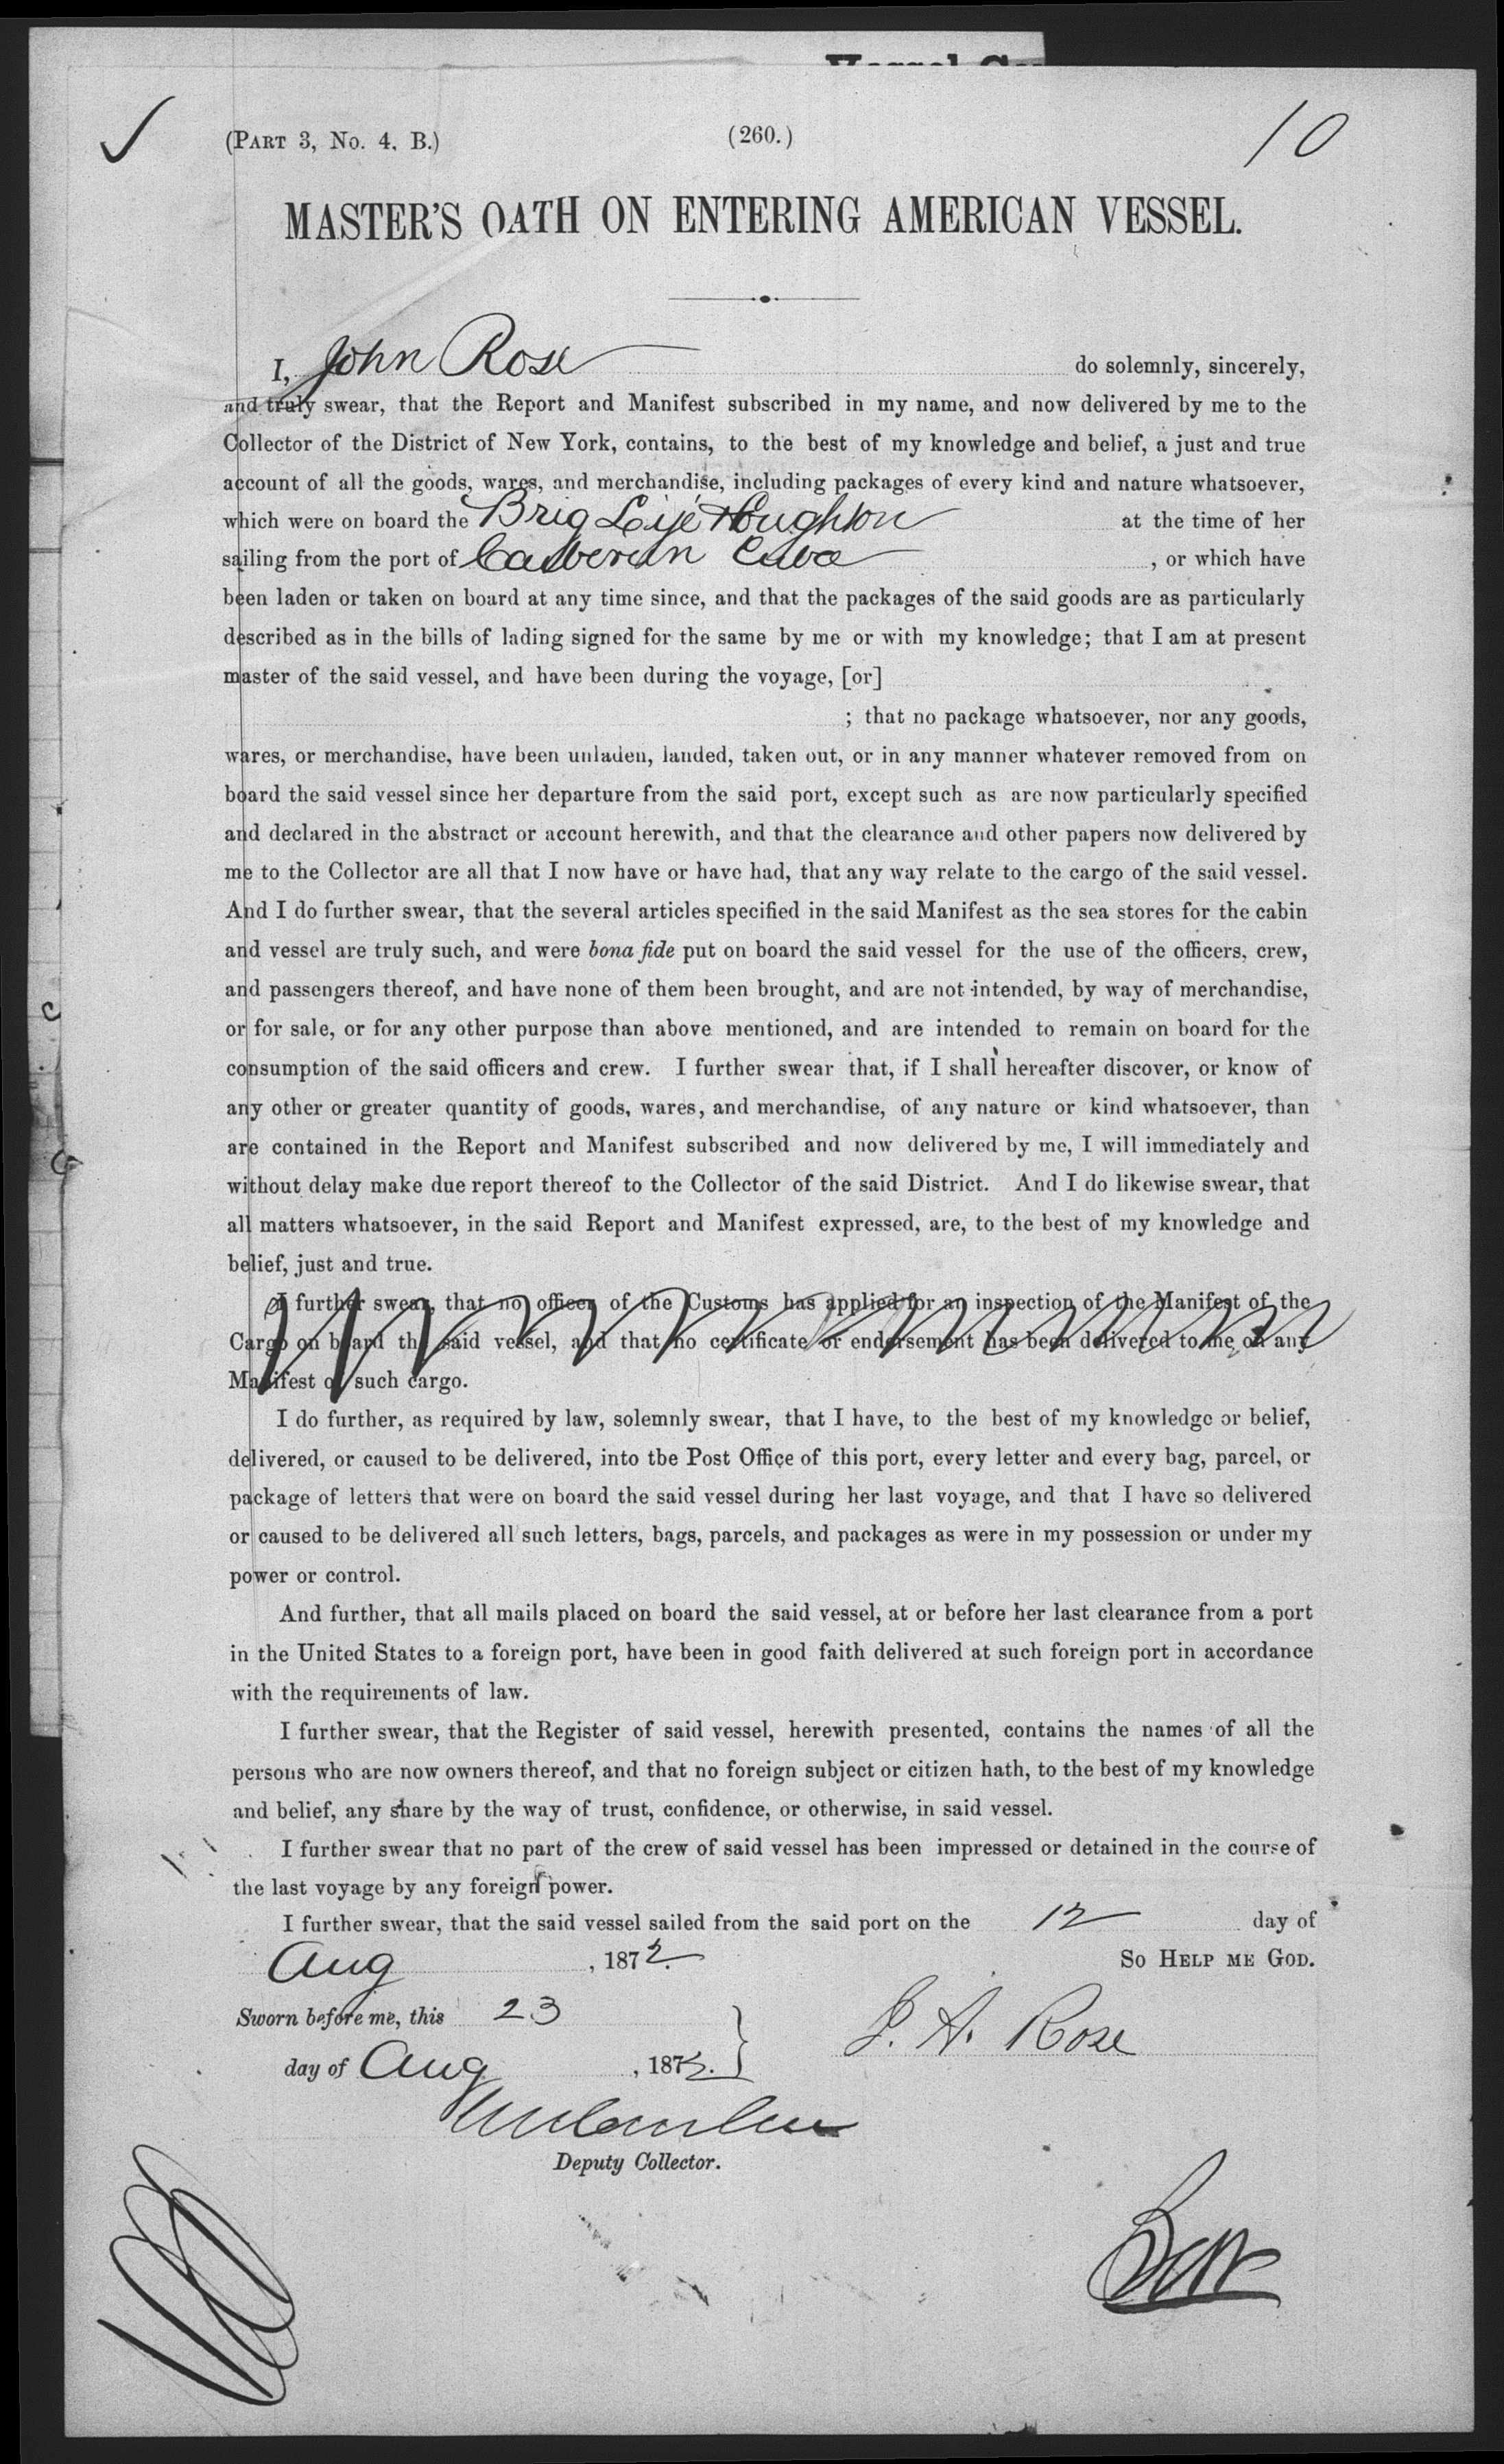 (PART 3, No. 4, B.)
(260.)
10
MASTER'S OATH ON ENTERING AMERICAN VESSEL.
I, John Rose do solemnly, sincerely,
and truly swear, that the Report and Manifest subscribed in my name, and now delivered by me to the
Collector of the District of New York, contains, to the best of my knowledge and belief, a just and true
account of all the goods, wares, and merchandise, including packages of every kind and nature whatsoever,
which were on board the Brig Lije Houghton at the time of her
sailing from the port of Cuba, or which have
been laden or taken on board at any time since, and that the packages of the said goods are as particularly
described as in the bills of lading signed for the same by me or with my knowledge; that I am at present
master of the said vessel, and have been during the voyage, [or]
; that no package whatsoever, nor any goods,
wares, or merchandise, have been unladen, landed, taken out, or in any manner whatever removed from on
board the said vessel since her departure from the said port, except such as are now particularly specified
and declared in the abstract or account herewith, and that the clearance and other papers now delivered by
me to the Collector are all that I now have or have had, that any way relate to the cargo of the said vessel.
And I do further swear, that the several articles specified in the said Manifest as the sea stores for the cabin
and vessel are truly such, and were bona fide put on board the said vessel for the use of the officers, crew,
and passengers thereof, and have none of them been brought, and are not intended, by way of merchandise,
or for sale, or for any other purpose than above mentioned, and are intended to remain on board for the
consumption of the said officers and crew. I further swear that, if I shall hereafter discover, or know of
any other or greater quantity of goods, wares, and merchandise, of any nature or kind whatsoever, than
are contained in the Report and Manifest subscribed and now delivered by me, I will immediately and
without delay make due report thereof to the Collector of the said District. And I do likewise swear, that
all matters whatsoever, in the said Report and Manifest expressed, are, to the best of my knowledge and
belief, just and true.
I further swear, that no officer of the Customs has applied for an inspection of the Manifest of the
Cargo on board the said vessel, and that no certificate or endorsement has been delivered to me on any
Manifest of such cargo.
I do further, as required by law, solemnly swear, that I have, to the best of my knowledge or belief,
delivered, or caused to be delivered, into tbe Post Office of this port, every letter and every bag, parcel, or
package of letters that were on board the said vessel during her last voyage, and that I have so delivered
or caused to be delivered all such letters, bags, parcels, and packages as were in my possession or under my
power or control.
And further, that all mails placed on board the said vessel, at or before her last clearance from a port
in the United States to a foreign port, have been in good faith delivered at such foreign port in accordance
with the requirements of law.
I further swear, that the Register of said vessel, herewith presented, contains the names of all the
persons who are now owners thereof, and that no foreign subject or citizen hath, to the best of my knowledge
and belief, any share by the way of trust, confidence, or otherwise, in said vessel.
I further swear that no part of the crew of said vessel has been impressed or detained in the course of
the last voyage by any foreign power.
I further swear, that the said vessel sailed from the said port on the 12 day of
Aug, 1872. SO HELP ME GOD.
Sworn before me, this 23
day of Aug, 1872.
J. A. Rose
Deputy Collector.